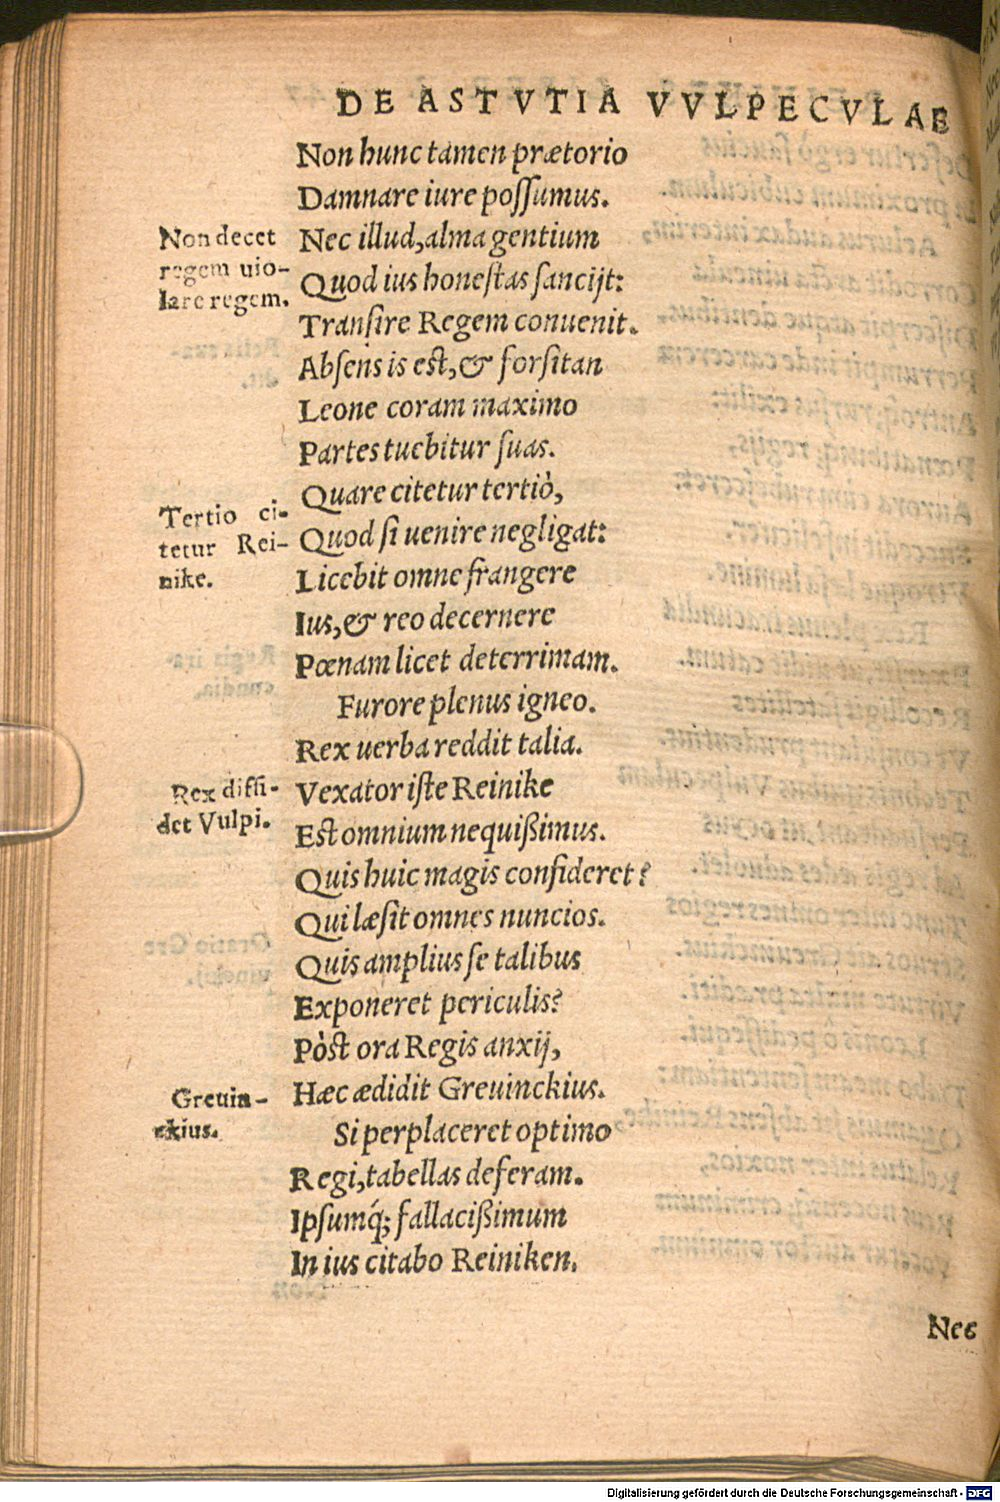 DE ASTVTIA VVLPECVLAE
Non hunc tamen prætorio
Damnare iure possumus.
Non decet
regem uio-
lare regem.
Nec illud, alma gentium
Quod ius honestas sancijt:
Transire Regem conuenit.
Absens is est, & forsitan
Leone coram maximo
Partes tuebitur suas.
Tertio ci-
tetur Rei-
nike.
Quare citetur tertiò,
Quod si uenire negligat:
Licebit omne frangere
Ius, & reo decernere
Pœnam licet deterrimam.
Furore plenus igneo.
Rex uerba reddit talia.
Rex diffi-
det Vulpi.
Vexator iste Reinike
Est omnium nequißimus.
Quis huic magis confideret?
Qui læsit omnes nuncios.
Quis amplius se talibus
Exponeret periculis?
Pòst ora Regis anxij,
Greuin-
ckius.
Hæc ædidit Greuinckius.
Si perplaceret optimo
Regi, tabellas deferam.
Ipsumq́; fallacißimum
In ius citabo Reiniken.
Nec
Digitalisierung gefördert durch die Deutsche Forschungsgemeinschaft - DFG